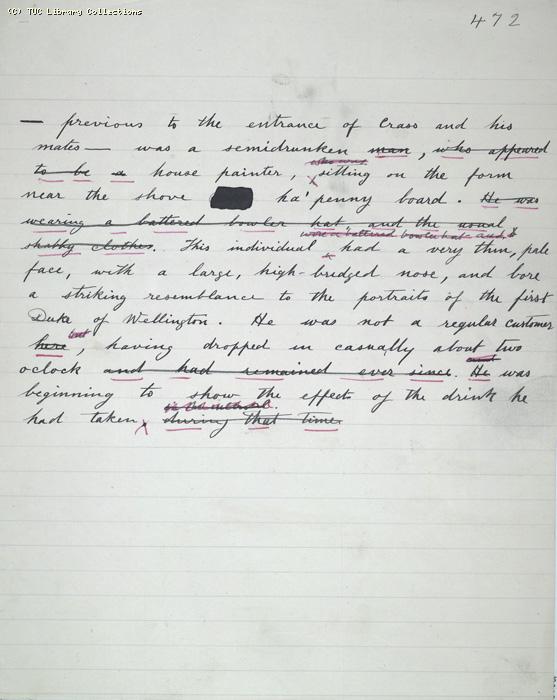 (C) TUC Library Collections
472
— previous to the entrance of Crass and his
mates — was a semidrunken man, who appeared
who was
to be a house painter, sitting on the form
near the shove ha'penny board. He was
wearing a battered bowler hat and the usual
wore a battered bowler hat and
shabby clothes. This individual had a very thin, pale
face, with a large, high-bridged nose, and bore
a striking resemblance to the portraits of the first
Duke of Wellington. He was not a regular customer
but
here, having dropped in casually about two
and
oclock and had remained ever since. He was
beginning to show the effects of the drink he
in the meantime.
had taken during that time.